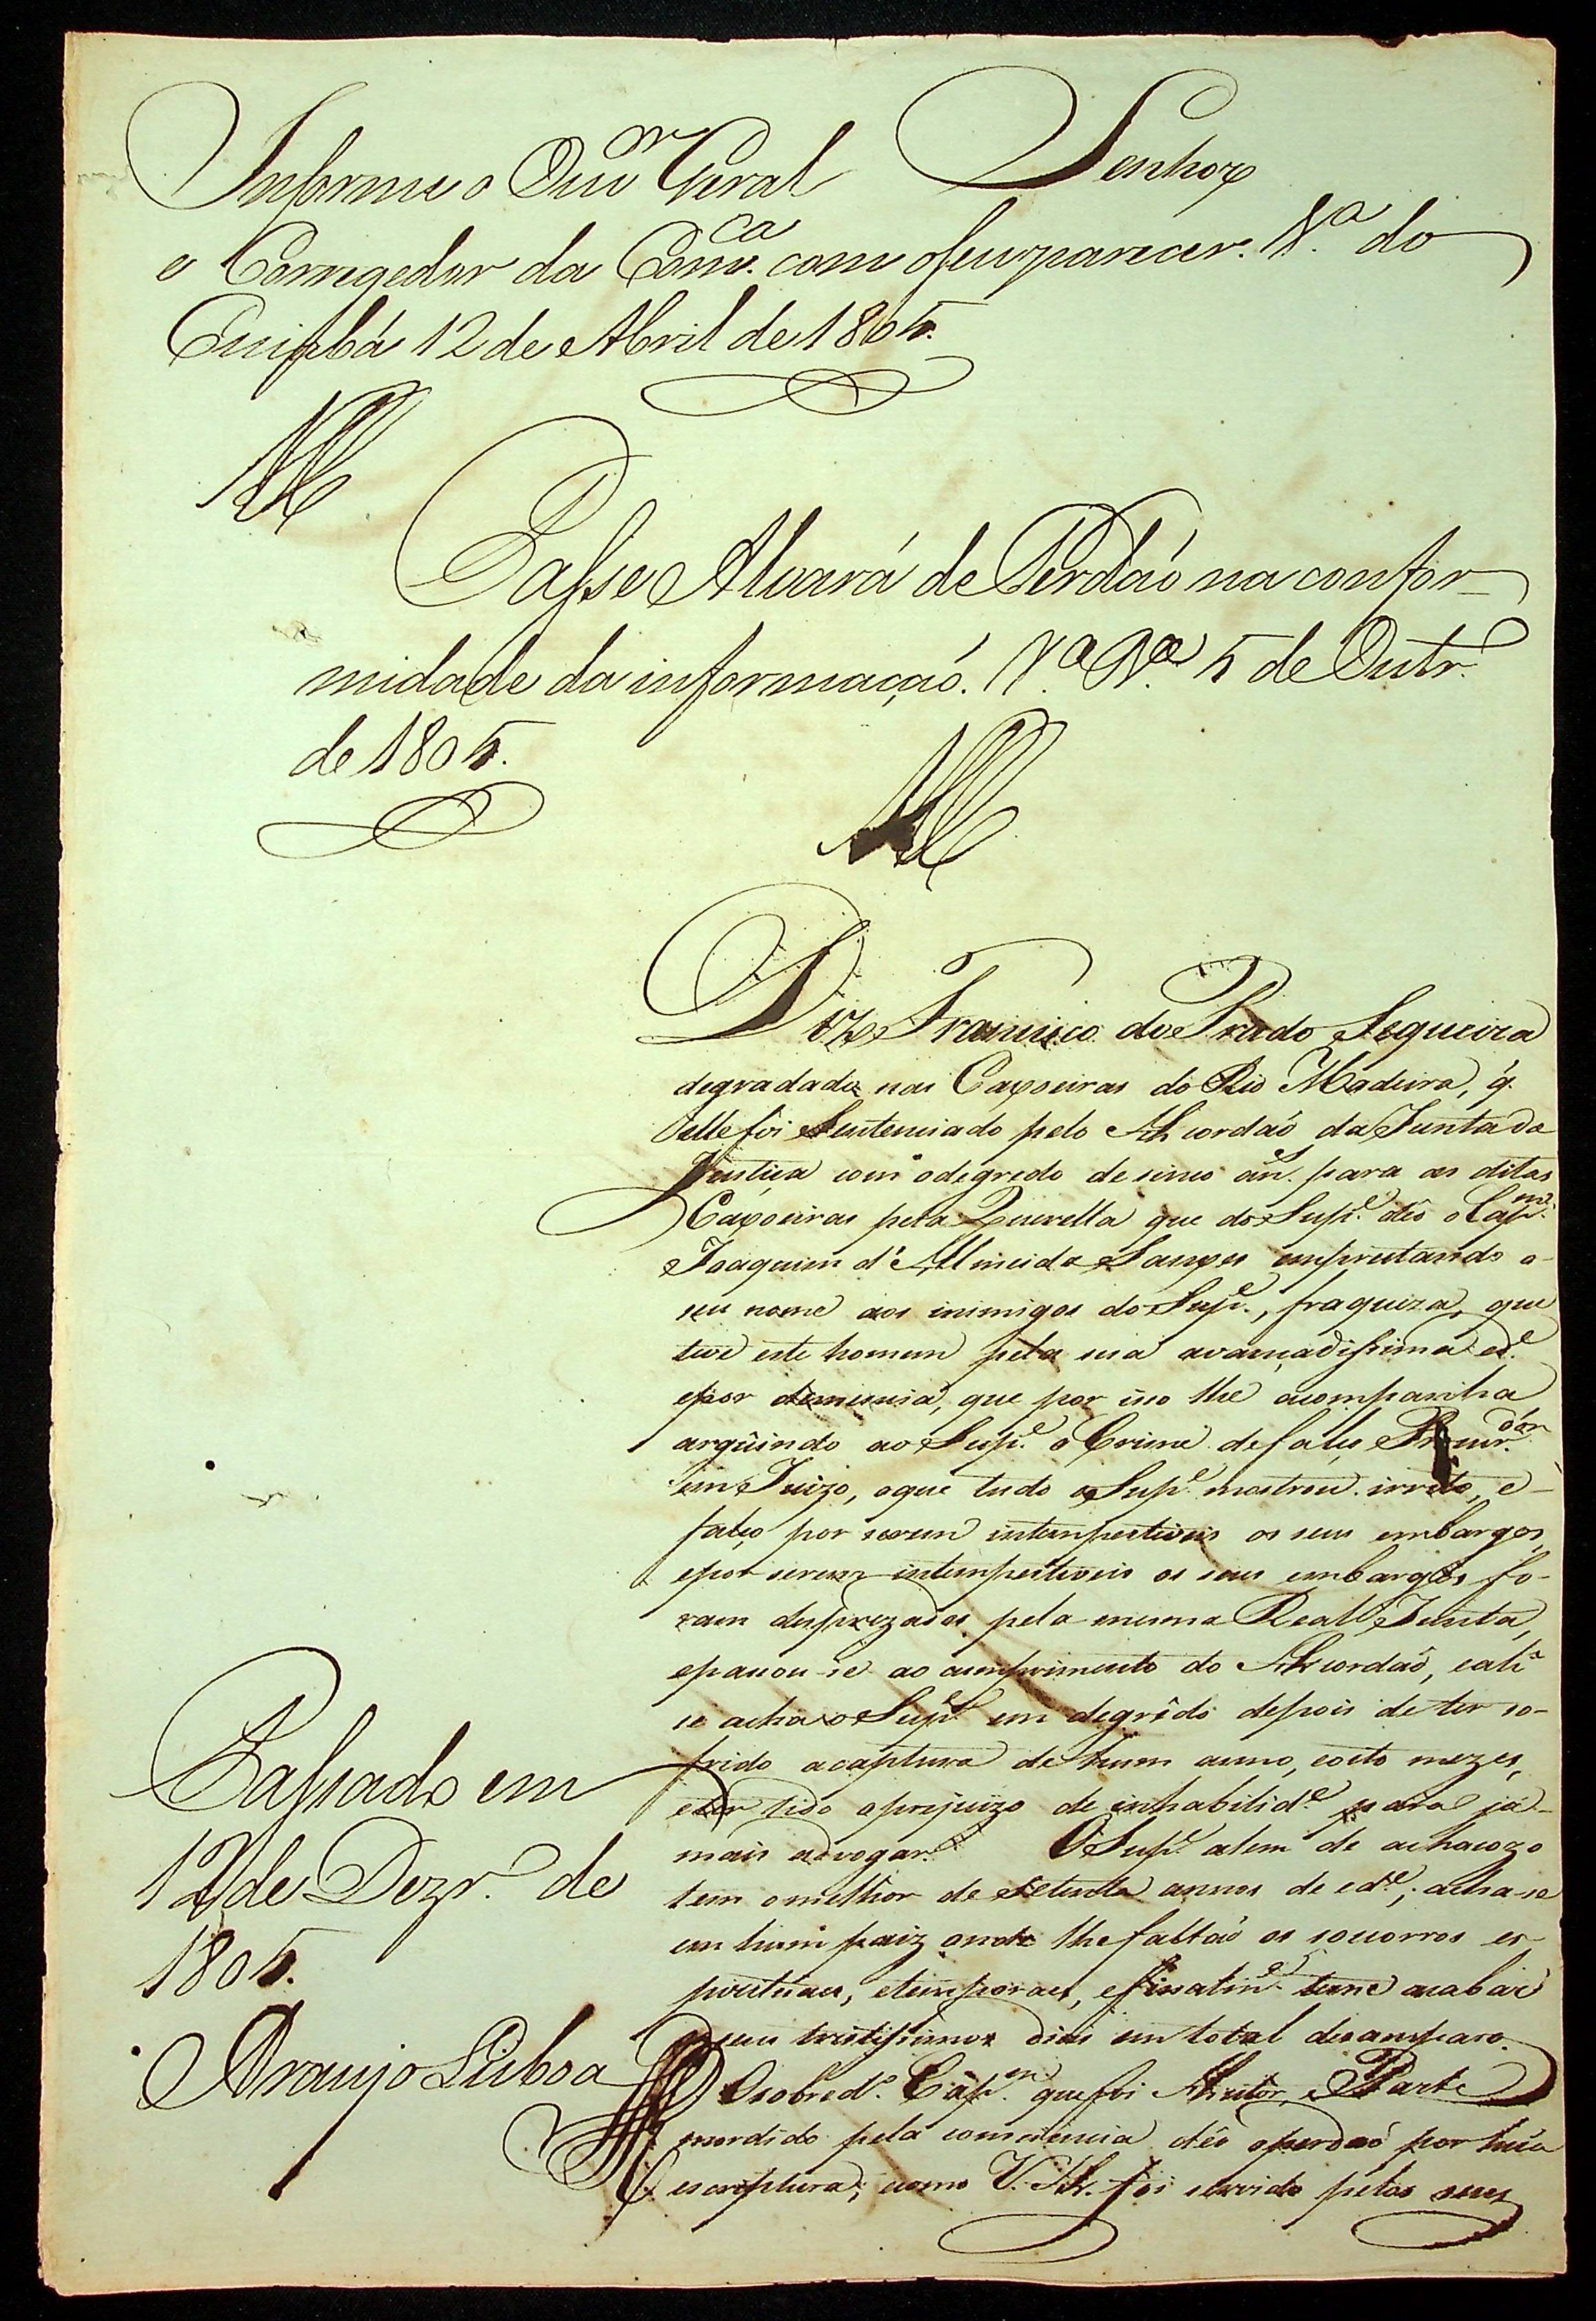 Senhor
Informe o Ouv.or Geral
e Corregedor da Com.ca com o seu parecer. V.a do
Cuiabá 12 de Abril de 1805.
Passe Alvará de Perdaõ na confor-
midade da informaçaõ. V.a B.a 5 de Outr.o
de 1805.
Diz Francisco do Prado Sequeira
degradado nas Caxoeiras do Rio Madeira, q.
elle foi Sentenciado pelo Acordaõ da Junta da
Justiça com o degredo de sinco an.s para as ditas
Caxoeiras pela Querella que do Sup.e deo o Cap.m
Joaquim d'Almeida enprestando o
seu nome aos inimigos do Sup.e, fraqueza, que
teve este homem pela sua avançadissima ed.e
e por demencia, que por isso lhe acompanha
argüindo ao Sup.e o Crime de falço Procur.dor
em Juizo, o que tudo o Sup.e mostrou irrito, e
falço por serem intempestiveis os seus embargos,
e por serem intempestiveis os seus embargos fo-
ram desprezados pela mesma Real Junta,
e passou-se ao cumprimento do Acordaõ, e ali
se acha o Sup.e em degrêdo depois de ter so-
frido a captura de hum anno, e oito mezes,
e ter tido o prejuizo de inhabilid.e para ja-
mais advogar. O Sup.e alem de achacozo
tem o melhor de Setenta annos de ed.e; acha-se
em hum paiz onde lhe faltaõ os socorros es-
pirituaes, e temporaes, e finalm.e teme acabar
os seus tristissimos dias em total desamparo.
O sobred.o Cap.m que foi Author, e Parte
mordido pela consciencia deo o perdaõ por huã
escriptura; como V. A. foi servido pelos seus
Passado em
12 de Dezr.o de
1805.
Araujo Lisboa